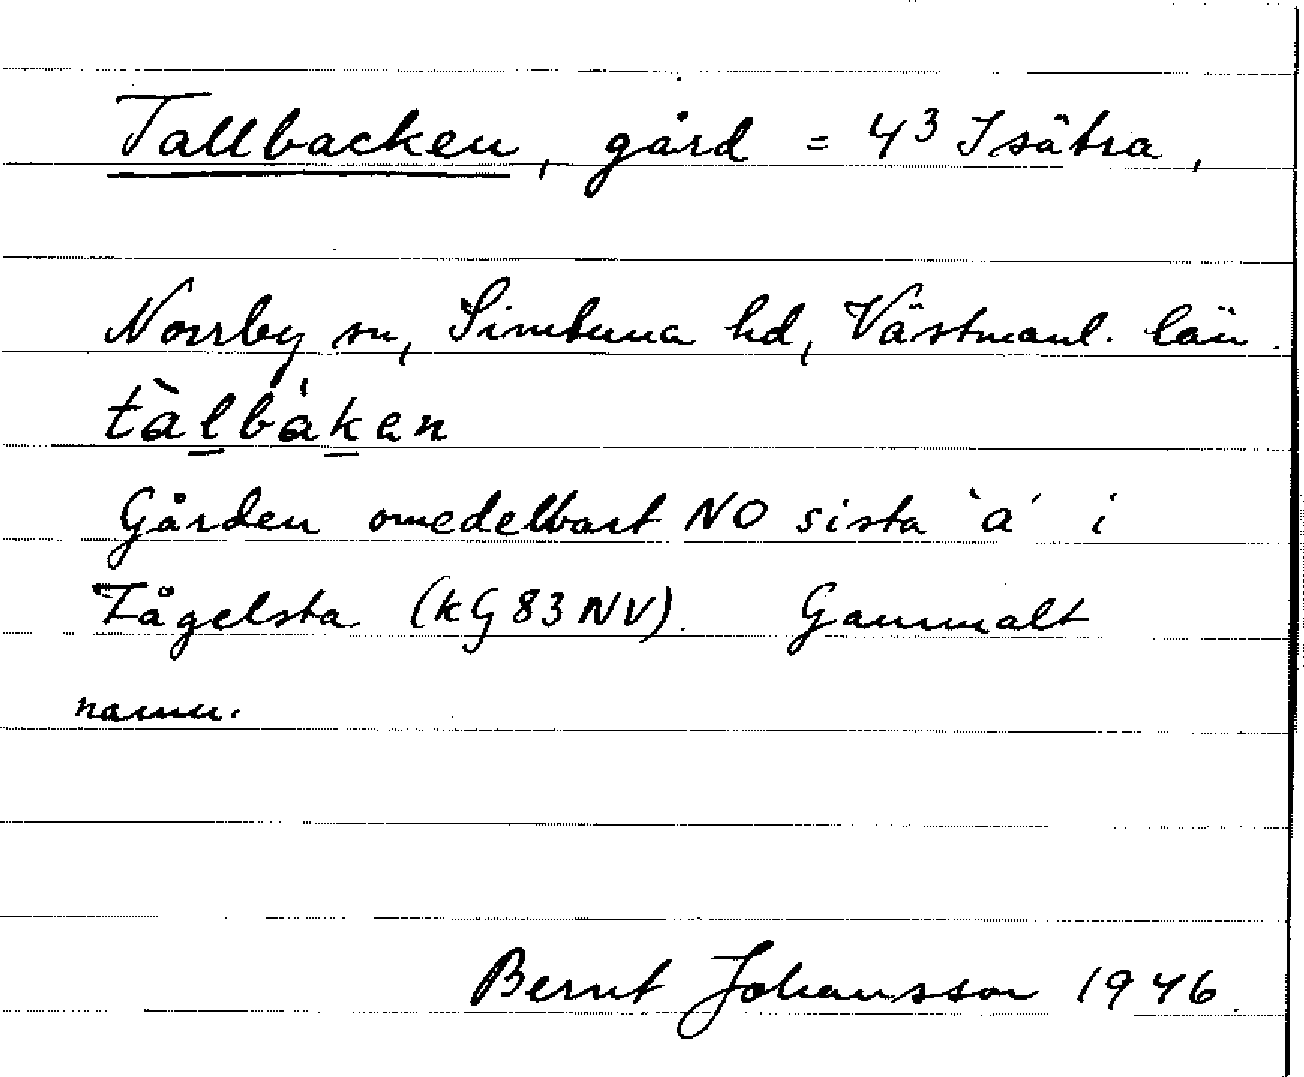 Tallbacken, gård = 4³ Isätra,
Norrby sn, Simtuna hd, Västmanl. län.
tàlbákan
Gården omedelbart NO sista `a´ i
Tågelsta (kG 83 NV). Gammalt
namn.
Bernt Johansson 1946.